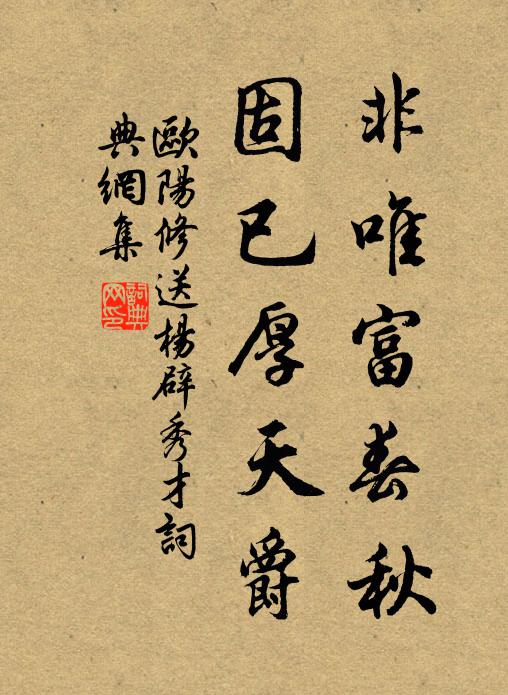 非唯富春秋
固已厚天爵
歐陽修送楊辟秀才詞
典網集
詞典
网印